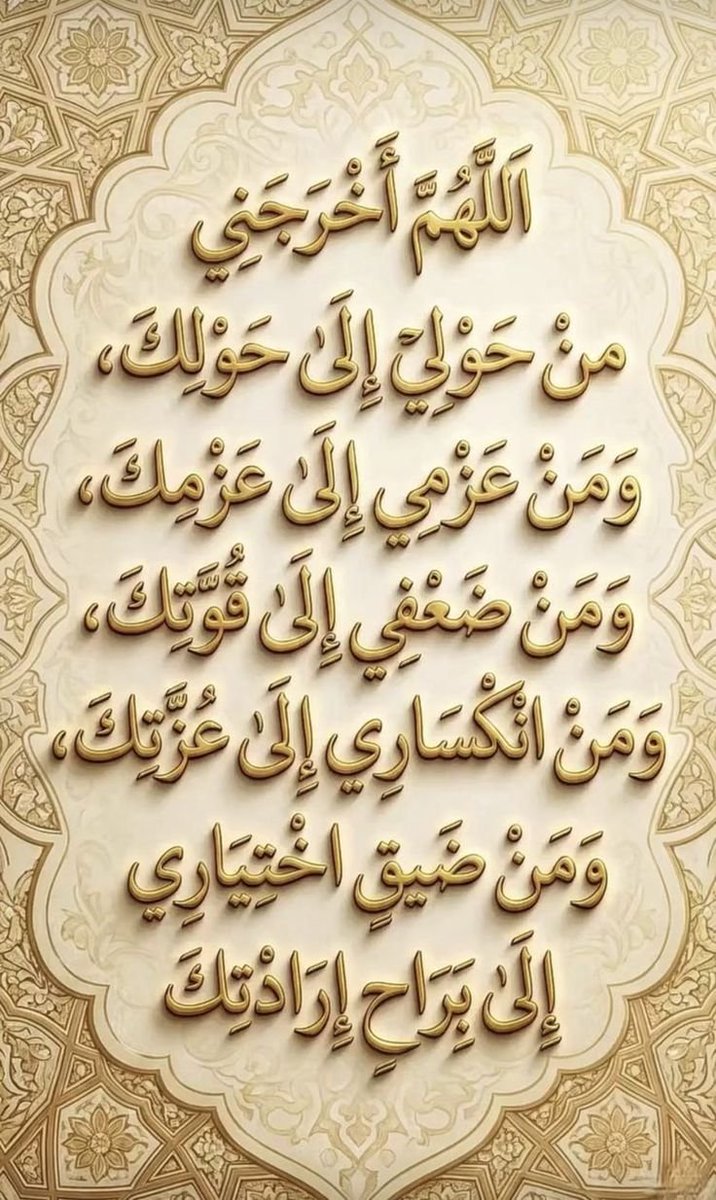 اَللَّهُمَّ أَخْرَجَنِي
منْ حَوْلِيْ إِلَىٰ حَوْلِكَ،
وَمَنْ عَزْمِي إِلَىٰ عَزْمِكَ،
وَمَنْ ضَعْفِي إِلَىٰ قُوَّتِكَ،
وَمَنْ انْكْسَارِي إِلَىٰ عُزَّتِكَ،
وَمَنْ ضَيقٍ اخْتِيَارِي
إِلَىٰ بِرَاحِ إِرَادْتِكَ